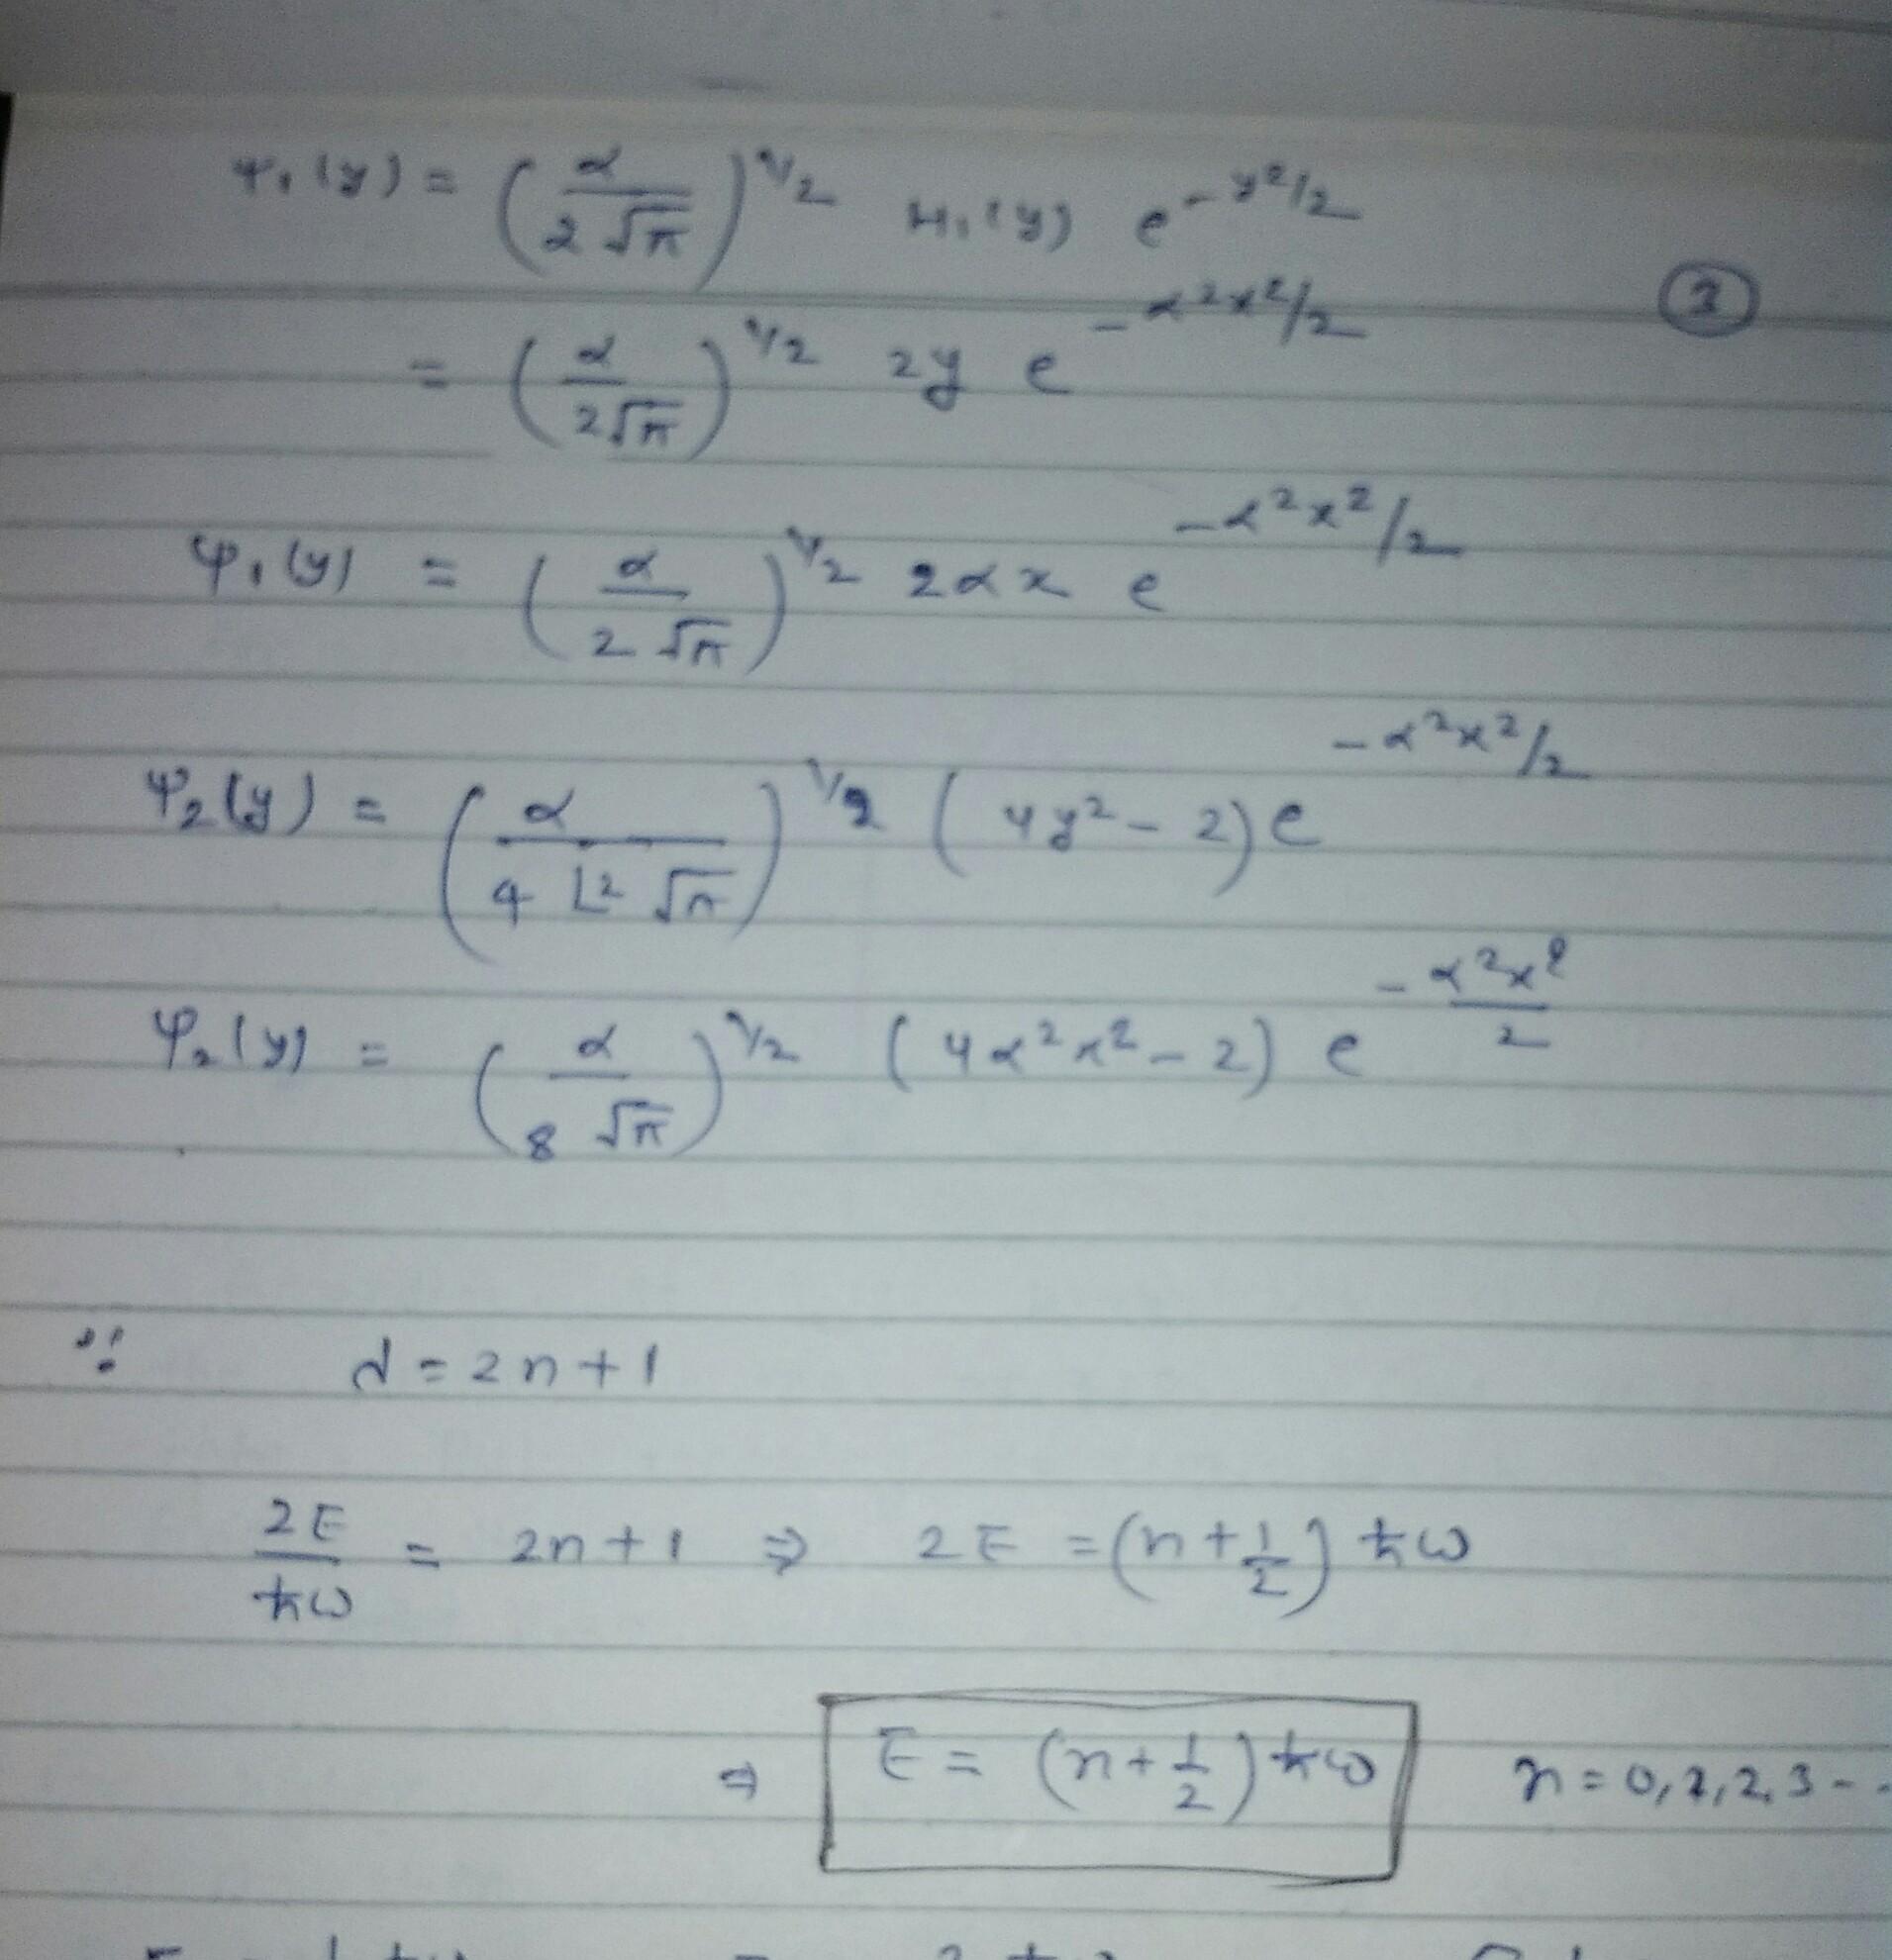 ψ₁(y) = (α / 2√π)^1/2 H₁(y) e^-y²/2
②
= (α / 2√π)^1/2 2y e^-α²x²/2
ψ₁(y) = (α / 2√π)^1/2 2αx e^-α²x²/2
ψ₂(y) = (α / 4 ∟2 √π)^1/2 (4y² - 2) e^-α²x²/2
ψ₂(y) = (α / 8√π)^1/2 (4α²x² - 2) e^-α²x²/2
∵ λ = 2n + 1
2E/ħω = 2n + 1 ⇒ 2E = (n + 1/2) ħω
⇒ E = (n + 1/2) ħω n = 0, 1, 2, 3 - -